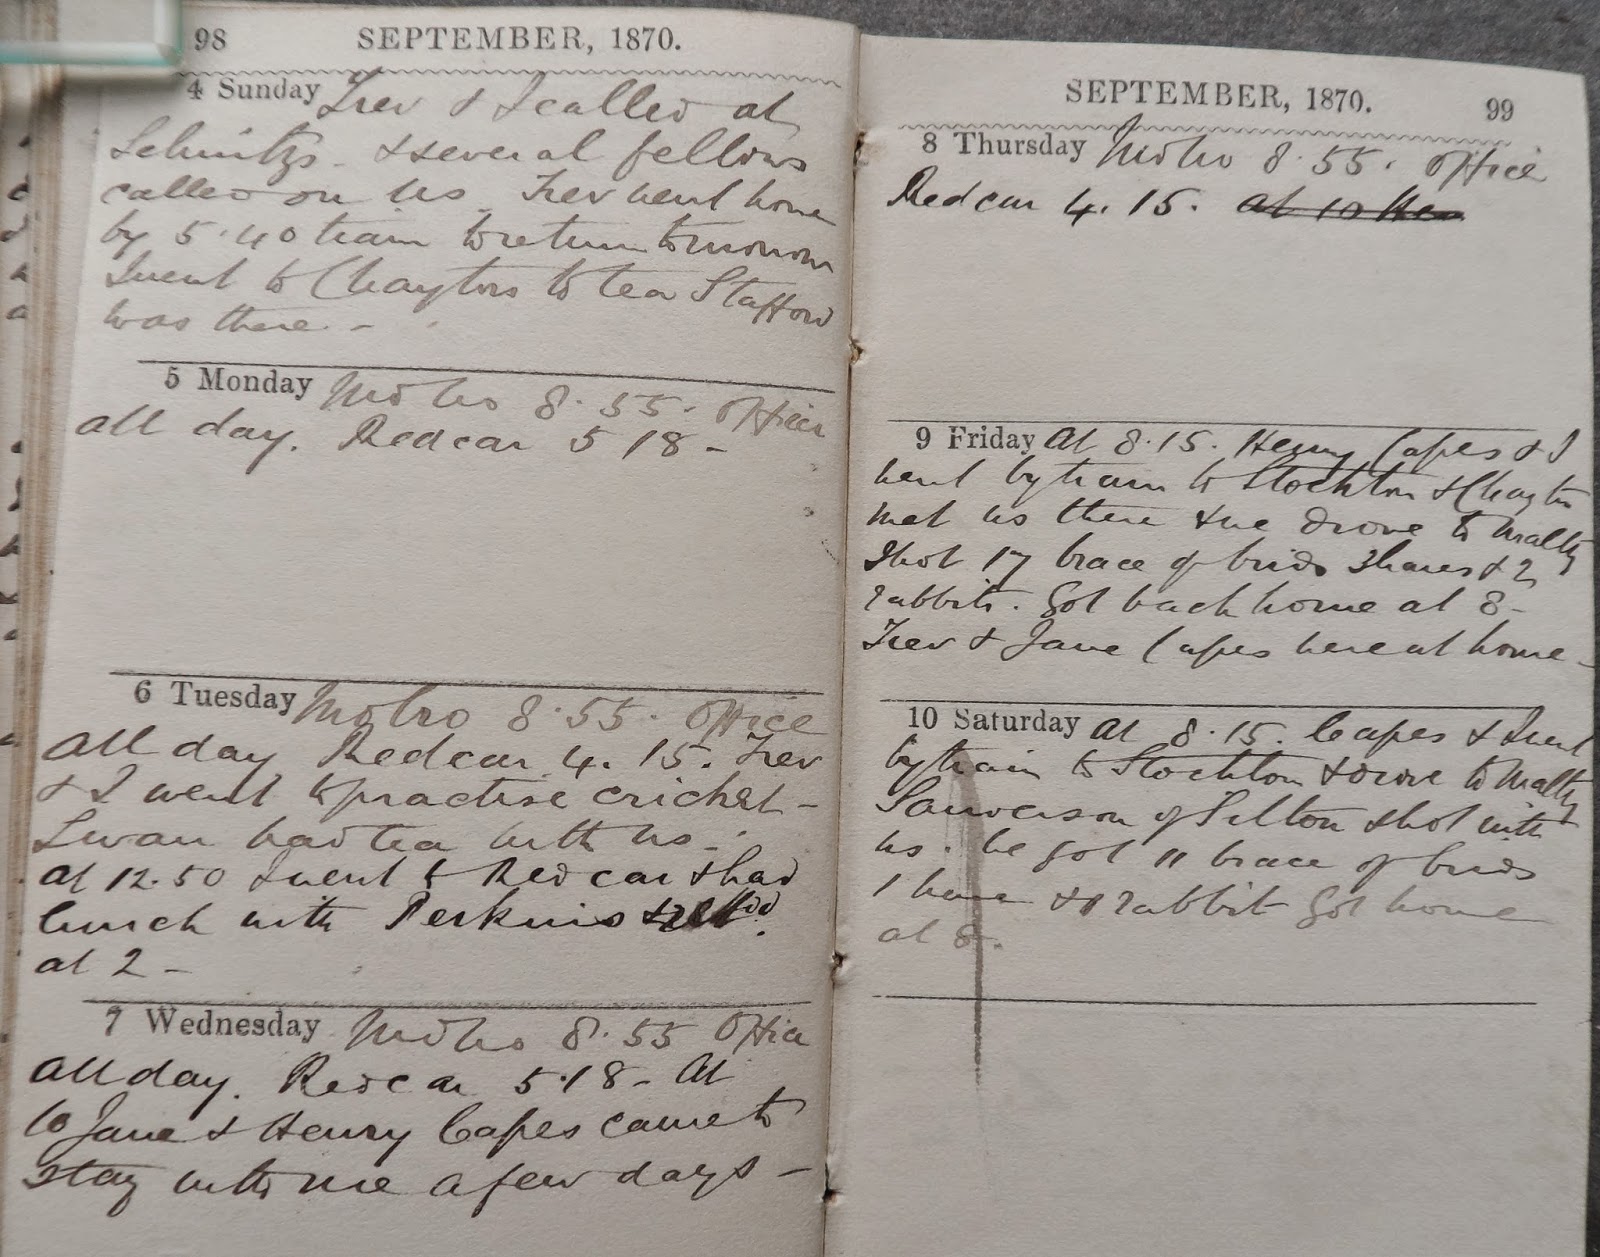 98 SEPTEMBER, 1870.
4 Sunday Trev & I called at
Schmitzs - & several fellows
called on us. Trev went home
by 5.40 train to return tomorrow
I went to Chaytors to tea Stafford
was there -
5 Monday Mdbro 8.55. Office
all day. Redcar 5 18 -
6 Tuesday Mdbro 8.55. Office
all day Redcar 4. 15. Trev
& I went to practise cricket -
Swan had tea with us -
at 12.50 I went to Redcar & had
lunch with Perkins
at 2 -
7 Wednesday Mdbro 8.55 Office
all day. Redcar 5.18 - At
10 Jane & Henry Capes came to
stay with me a few days -
SEPTEMBER, 1870. 99
8 Thursday Mdbro 8.55. Office
Redcar 4. 15. at 10 Hen
9 Friday At 8.15. Henry Capes & I
went by train to Stockton & Chaytor
met us there & we drove to Maltby
Shot 17 brace of birds 3 hares & 2
rabbits. Got back home at 8 -
Trev & Jane Capes were at home -
10 Saturday At 8.15. Capes & I went
by train to Stockton & drove to Maltby
of Hilton shot with
us. We got 11 brace of birds
1 hare & 1 rabbit Got home
at 8.